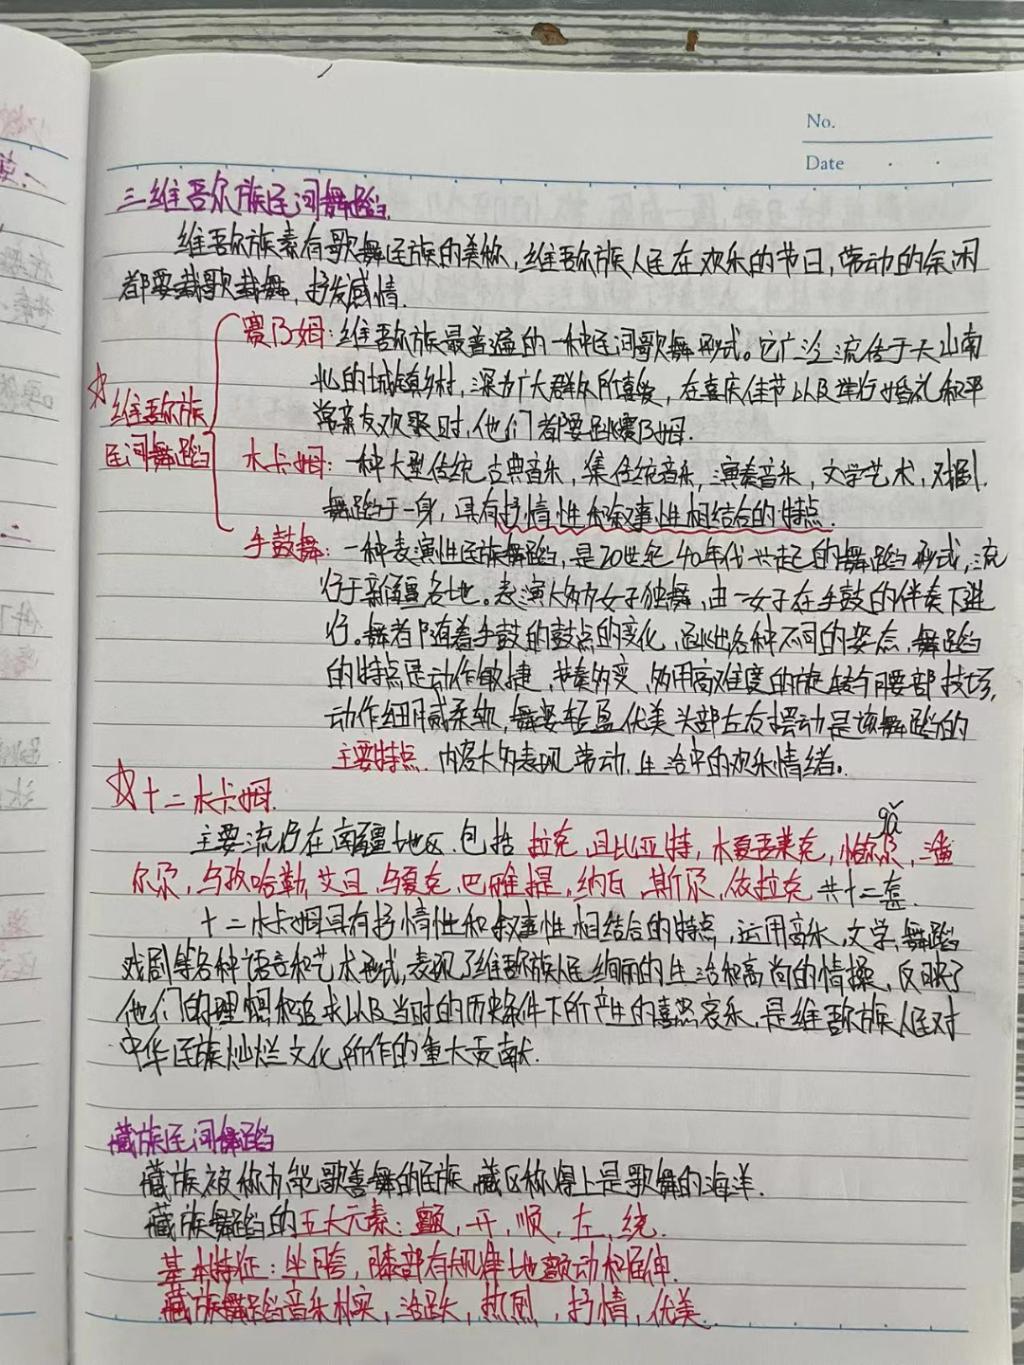 No.
Date
三.维吾尔族民间舞蹈.
维吾尔族素有歌舞民族的美称,维吾尔族人民在欢乐的节日,劳动的余闲
都要载歌载舞,抒发感情.
赛乃姆:维吾尔族最普遍的一种民间歌舞形式。它广泛流传于天山南
北的城镇乡村,深为广大群众所喜爱,在喜庆佳节以及举行婚礼和平
常亲友欢聚时,他们都要跳赛乃姆.
☆维吾尔族
民间舞蹈
木卡姆:一种大型传统古典音乐,集传统音乐,演奏音乐,文学艺术,戏剧.
舞蹈于一身,具有抒情性和叙事性相结合的特点.
手鼓舞:一种表演性民族舞蹈,是20世纪40年代兴起的舞蹈形式,流
行于新疆各地。表演大多为女子独舞,由一女子在手鼓的伴奏下进
行。舞者随着手鼓的鼓点的变化,跳出各种不同的姿态,舞蹈
的特点是动作敏捷,节奏多变,多用高难度的旋转与腰部技巧,
动作细腻柔软,舞姿轻盈优美头部左右摆动是该舞蹈的
主要特点.内容大多表现劳动.生活中的欢乐情绪。
☆十二木卡姆.
主要流行在南疆地区.包括拉克,且比亚特,木夏吾莱克,恰尔尕,潘
gǎ
尔尕,乌孜哈勒,艾且,乌夏克,巴雅提,纳瓦,斯尕,依拉克共十二套.
十二木卡姆具有抒情性和叙事性相结合的特点,运用音乐,文学,舞蹈
戏剧等各种语言和艺术形式,表现了维吾尔族人民绚丽的生活和高尚的情操,反映了
他们的理想和追求以及当时的历史条件下所产生的喜怒哀乐.是维吾尔族人民对
中华民族灿烂文化所作的重大贡献.
藏族民间舞蹈
藏族被称为能歌善舞的民族,藏区称得上是歌舞的海洋.
藏族舞蹈的五大元素:颤,开,顺,左,绕.
基本特征:坐胯,膝部有规律地颤动和屈伸.
藏族舞蹈音乐朴实,活跃,热烈,抒情,优美.